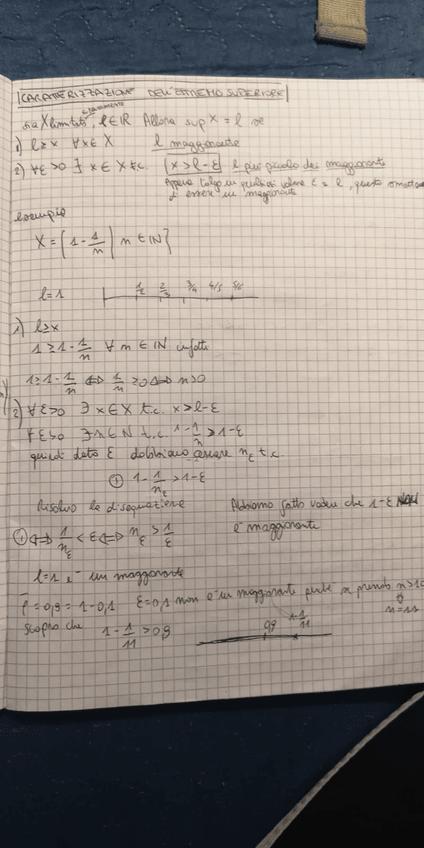 CARATTERIZZAZIONE DELL'ESTREMO SUPERIORE
sia X limitato superiormente, l ∈ ℝ Allora sup X = l se
1) l ≥ x ∀x ∈ X l maggiorante
2) ∀ε > 0 ∃ x ∈ X t.c. x > l - ε l più piccolo dei maggioranti
Appena tolgo un qualsiasi valore ε a l, questo smette
di essere un maggiorante
Esempio
X = { 1 - 1/n | n ∈ ℕ }
l = 1 1/2 2/3 3/4 4/5 5/6
1) l ≥ x
1 ≥ 1 - 1/n ∀ n ∈ ℕ infatti
1 ≥ 1 - 1/n ⟺ 1/n ≥ 0 ⟺ n > 0
2) ∀ε > 0 ∃ x ∈ X t.c. x > l - ε
∀ε > 0 ∃ n ∈ ℕ t.c. 1 - 1/n > 1 - ε
quindi dato ε dobbiamo cercare nε t.c.
① 1 - 1/nε > 1 - ε
Risolvo la disequazione Abbiamo fatto vedere che 1 - ε non
è maggiorante
① ⟺ 1/nε < ε ⟺ nε > 1/ε
l = 1 è un maggiorante
l = 0,9 = 1 - 0,1 ε = 0,1 non è un maggiorante perché se prendo n > 10
n = 11
scopro che 1 - 1/11 > 0,9 0,9 1 - 1/11